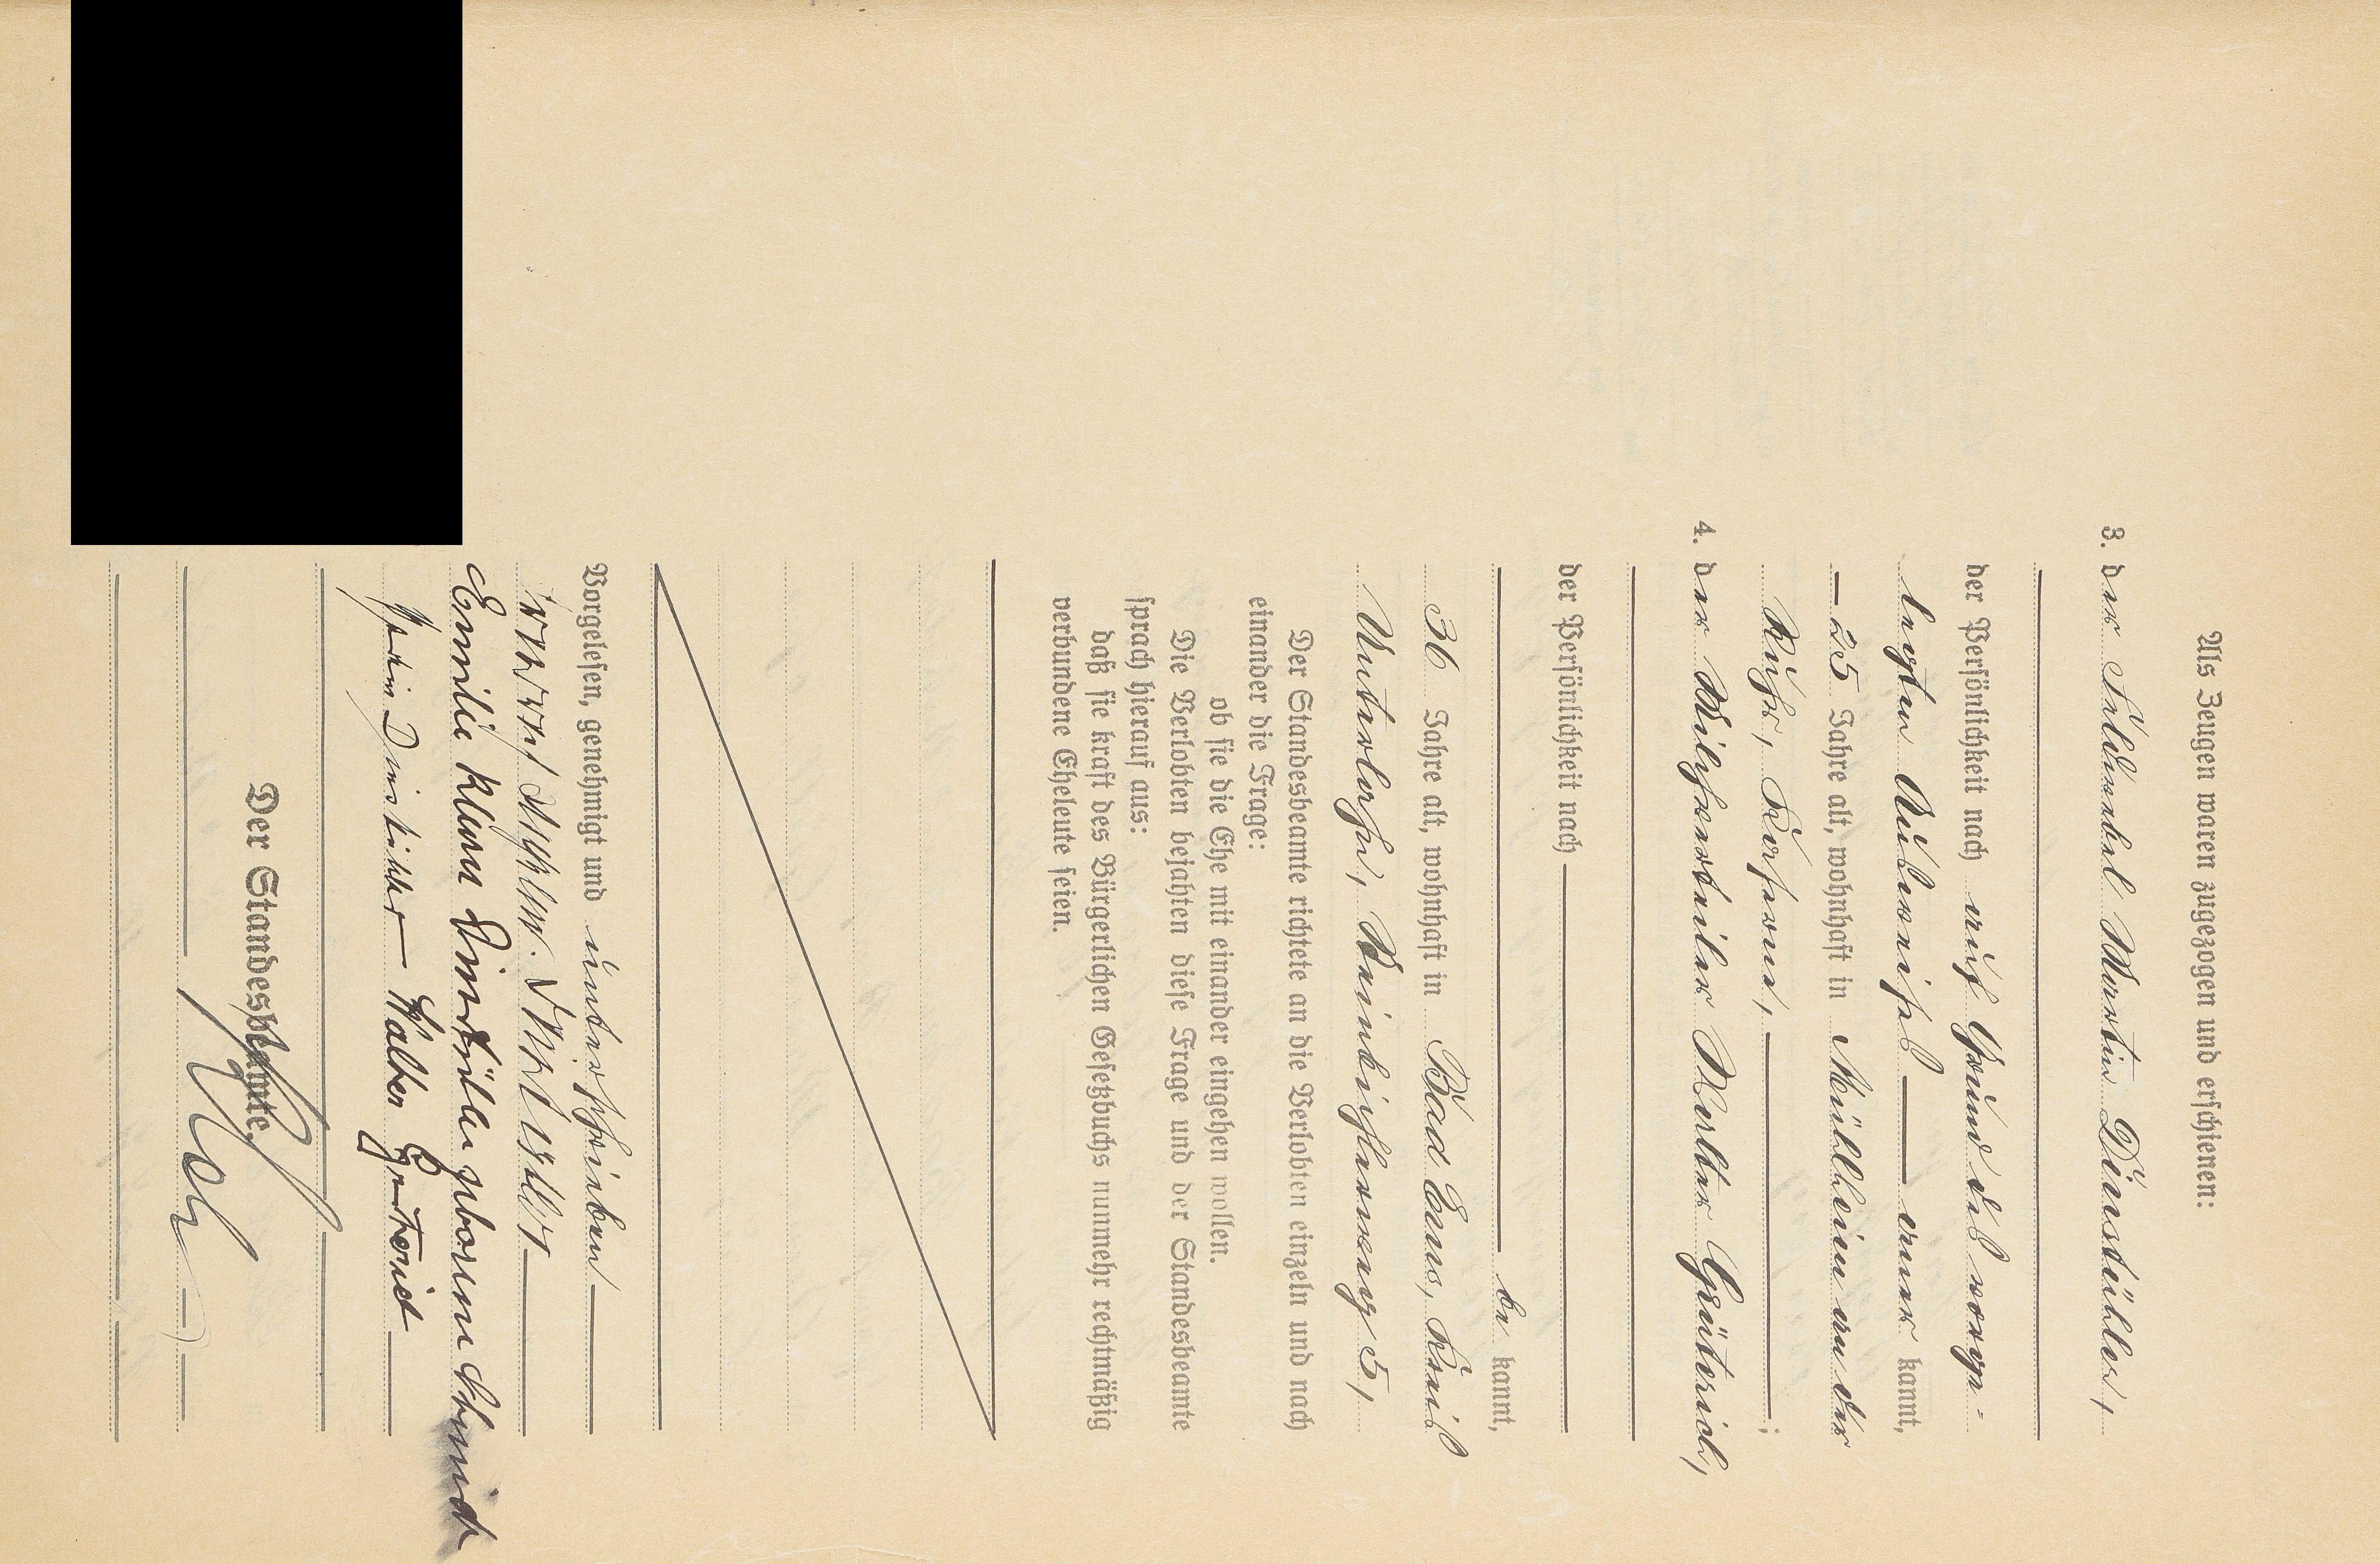 Als Zeugen waren zugezogen und erschienen:
3. der Feldwebel Martin Dünstühler,
der Persönlichkeit nach auf Grund des vorge-
legten Ausweises aner kannt,
25 Jahre alt, wohnhaft in Mülheim an der
Ruhr, Kaserne,
4. der Milchverteiler Walter Gräterich,
der Persönlichkeit nach
be kannt,
36 Jahre alt, wohnhaft in Bad Ems, Kreis
Unterlahn, 5,
Der Standesbeamte richtete an die Verlobten einzeln und nach
einander die Frage:
ob sie die Ehe mit einander eingehen wollen.
Die Verlobten bejahten diese Frage und der Standesbeamte
sprach hierauf aus:
daß sie kraft des Bürgerlichen Gesetzbuchs nunmehr rechtmäßig
verbundene Eheleute seien.
Vorgelesen, genehmigt und unterschrieben
Emilie Klara geborene Schmidt
Martin Walter
Der Standesbeamte